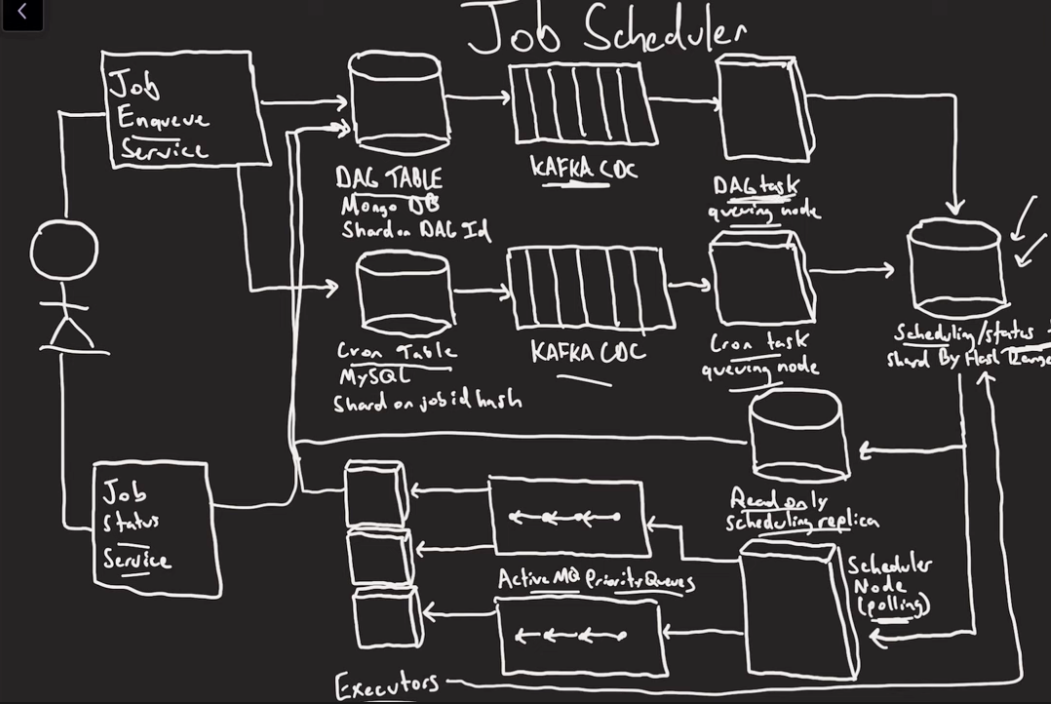 Job Scheduler
Job
Enqueue
Service
DAG TABLE
Mongo DB
Shard on DAG Id
KAFKA CDC
DAG task
queuing node
Cron Table
MySQL
Shard on job id hash
KAFKA CDC
Cron task
queuing node
Scheduling/status
shard By Hash Range
Read only
scheduling replica
Job
Status
Service
Active MQ Priority Queues
Scheduler
Node
(polling)
Executors